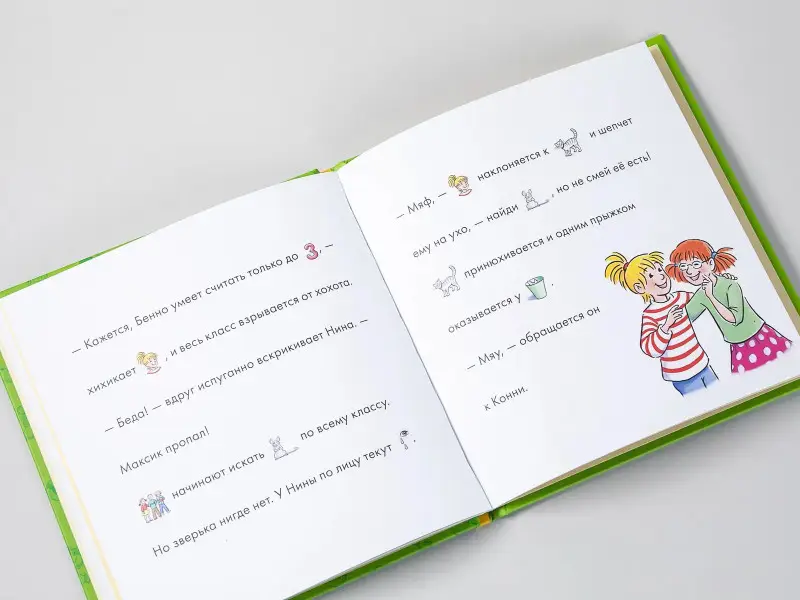 — Кажется, Бенно умеет считать только до 3, —
хихикает , и весь класс взрывается от хохота.
— Беда! — вдруг испуганно вскрикивает Нина. —
Максик пропал!
начинают искать по всему классу.
Но зверька нигде нет. У Нины по лицу текут .
— Мяф, — наклоняется к и шепчет
ему на ухо, — найди , но не смей её есть!
принюхивается и одним прыжком
оказывается у .
— Мяу, — обращается он
к Конни.